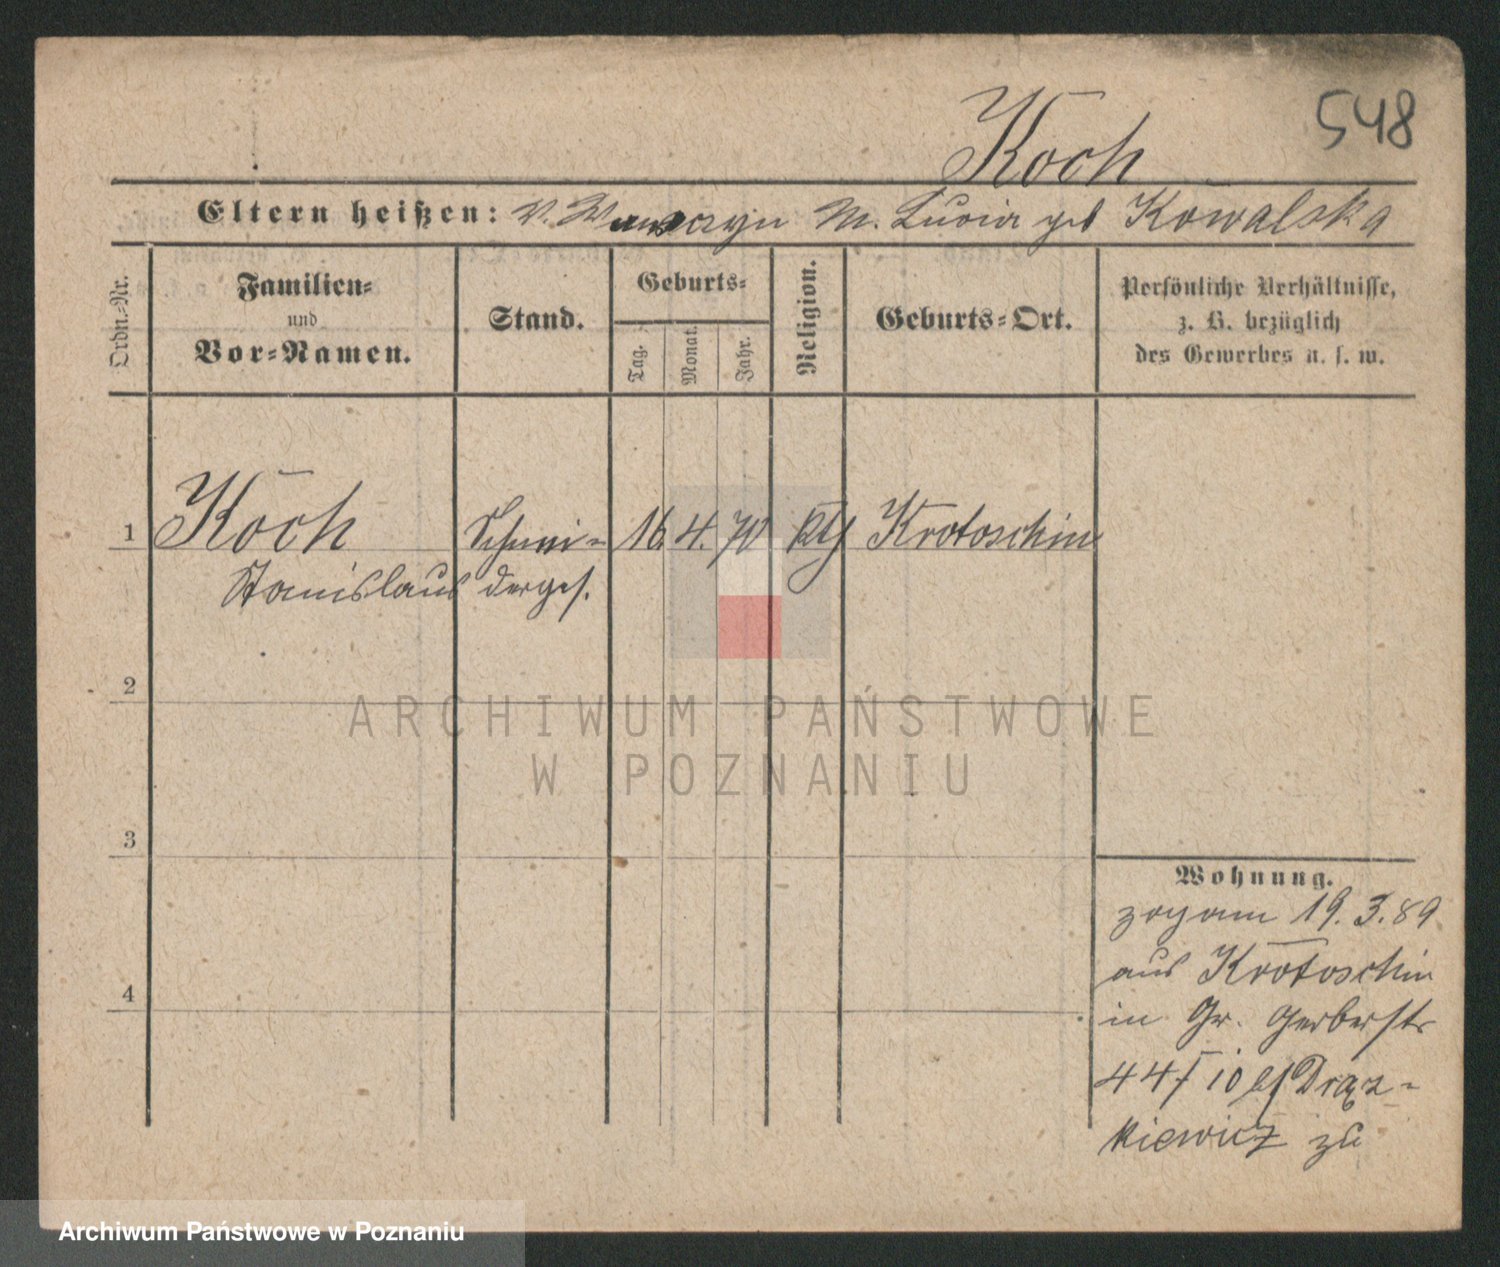 548
Koch
Eltern heißen: V. Wawrzyn M. Lucia geb Kowalska
Ordn.-Nr.
Familien-
und
Vor-Namen.
Stand.
Geburts-
Tag.
Monat.
Jahr.
Religion.
Geburts-Ort.
Persönliche Verhältnisse,
z. B. bezüglich
des Gewerbes u. s. w.
1 Koch Schnei- 16 4. 70 kth Krotoschin
Stanislaus derges.
2
3
4
Wohnung.
zog am 19. 3. 89
aus Krotoschin
in Gr. Gerberstr
44 bei Drąz-
kiewicz zu
ARCHIWUM PAŃSTWOWE
W POZNANIU
Archiwum Państwowe w Poznaniu